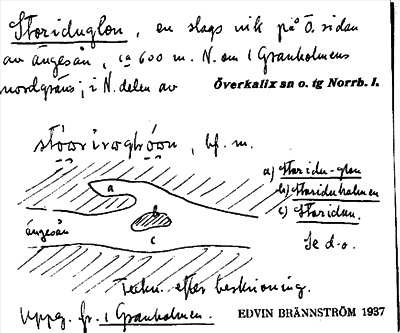 Storiduglon, en slags vik på Ö. sidan
av ängesån, ca 600 m. N. om 1 Granholmens
nordgräns; i N. delen av
Överkalix sn o. tg Norrb. l.
bf. m.
a) Storidu-glon
b) Storiduholmen
c) Storidun.
Se d-o.
a
b
c
ängesån
Teckn. efter beskrivning.
Uppg. fr. 1 Granholmen.
EDVIN BRÄNNSTRÖM 1937